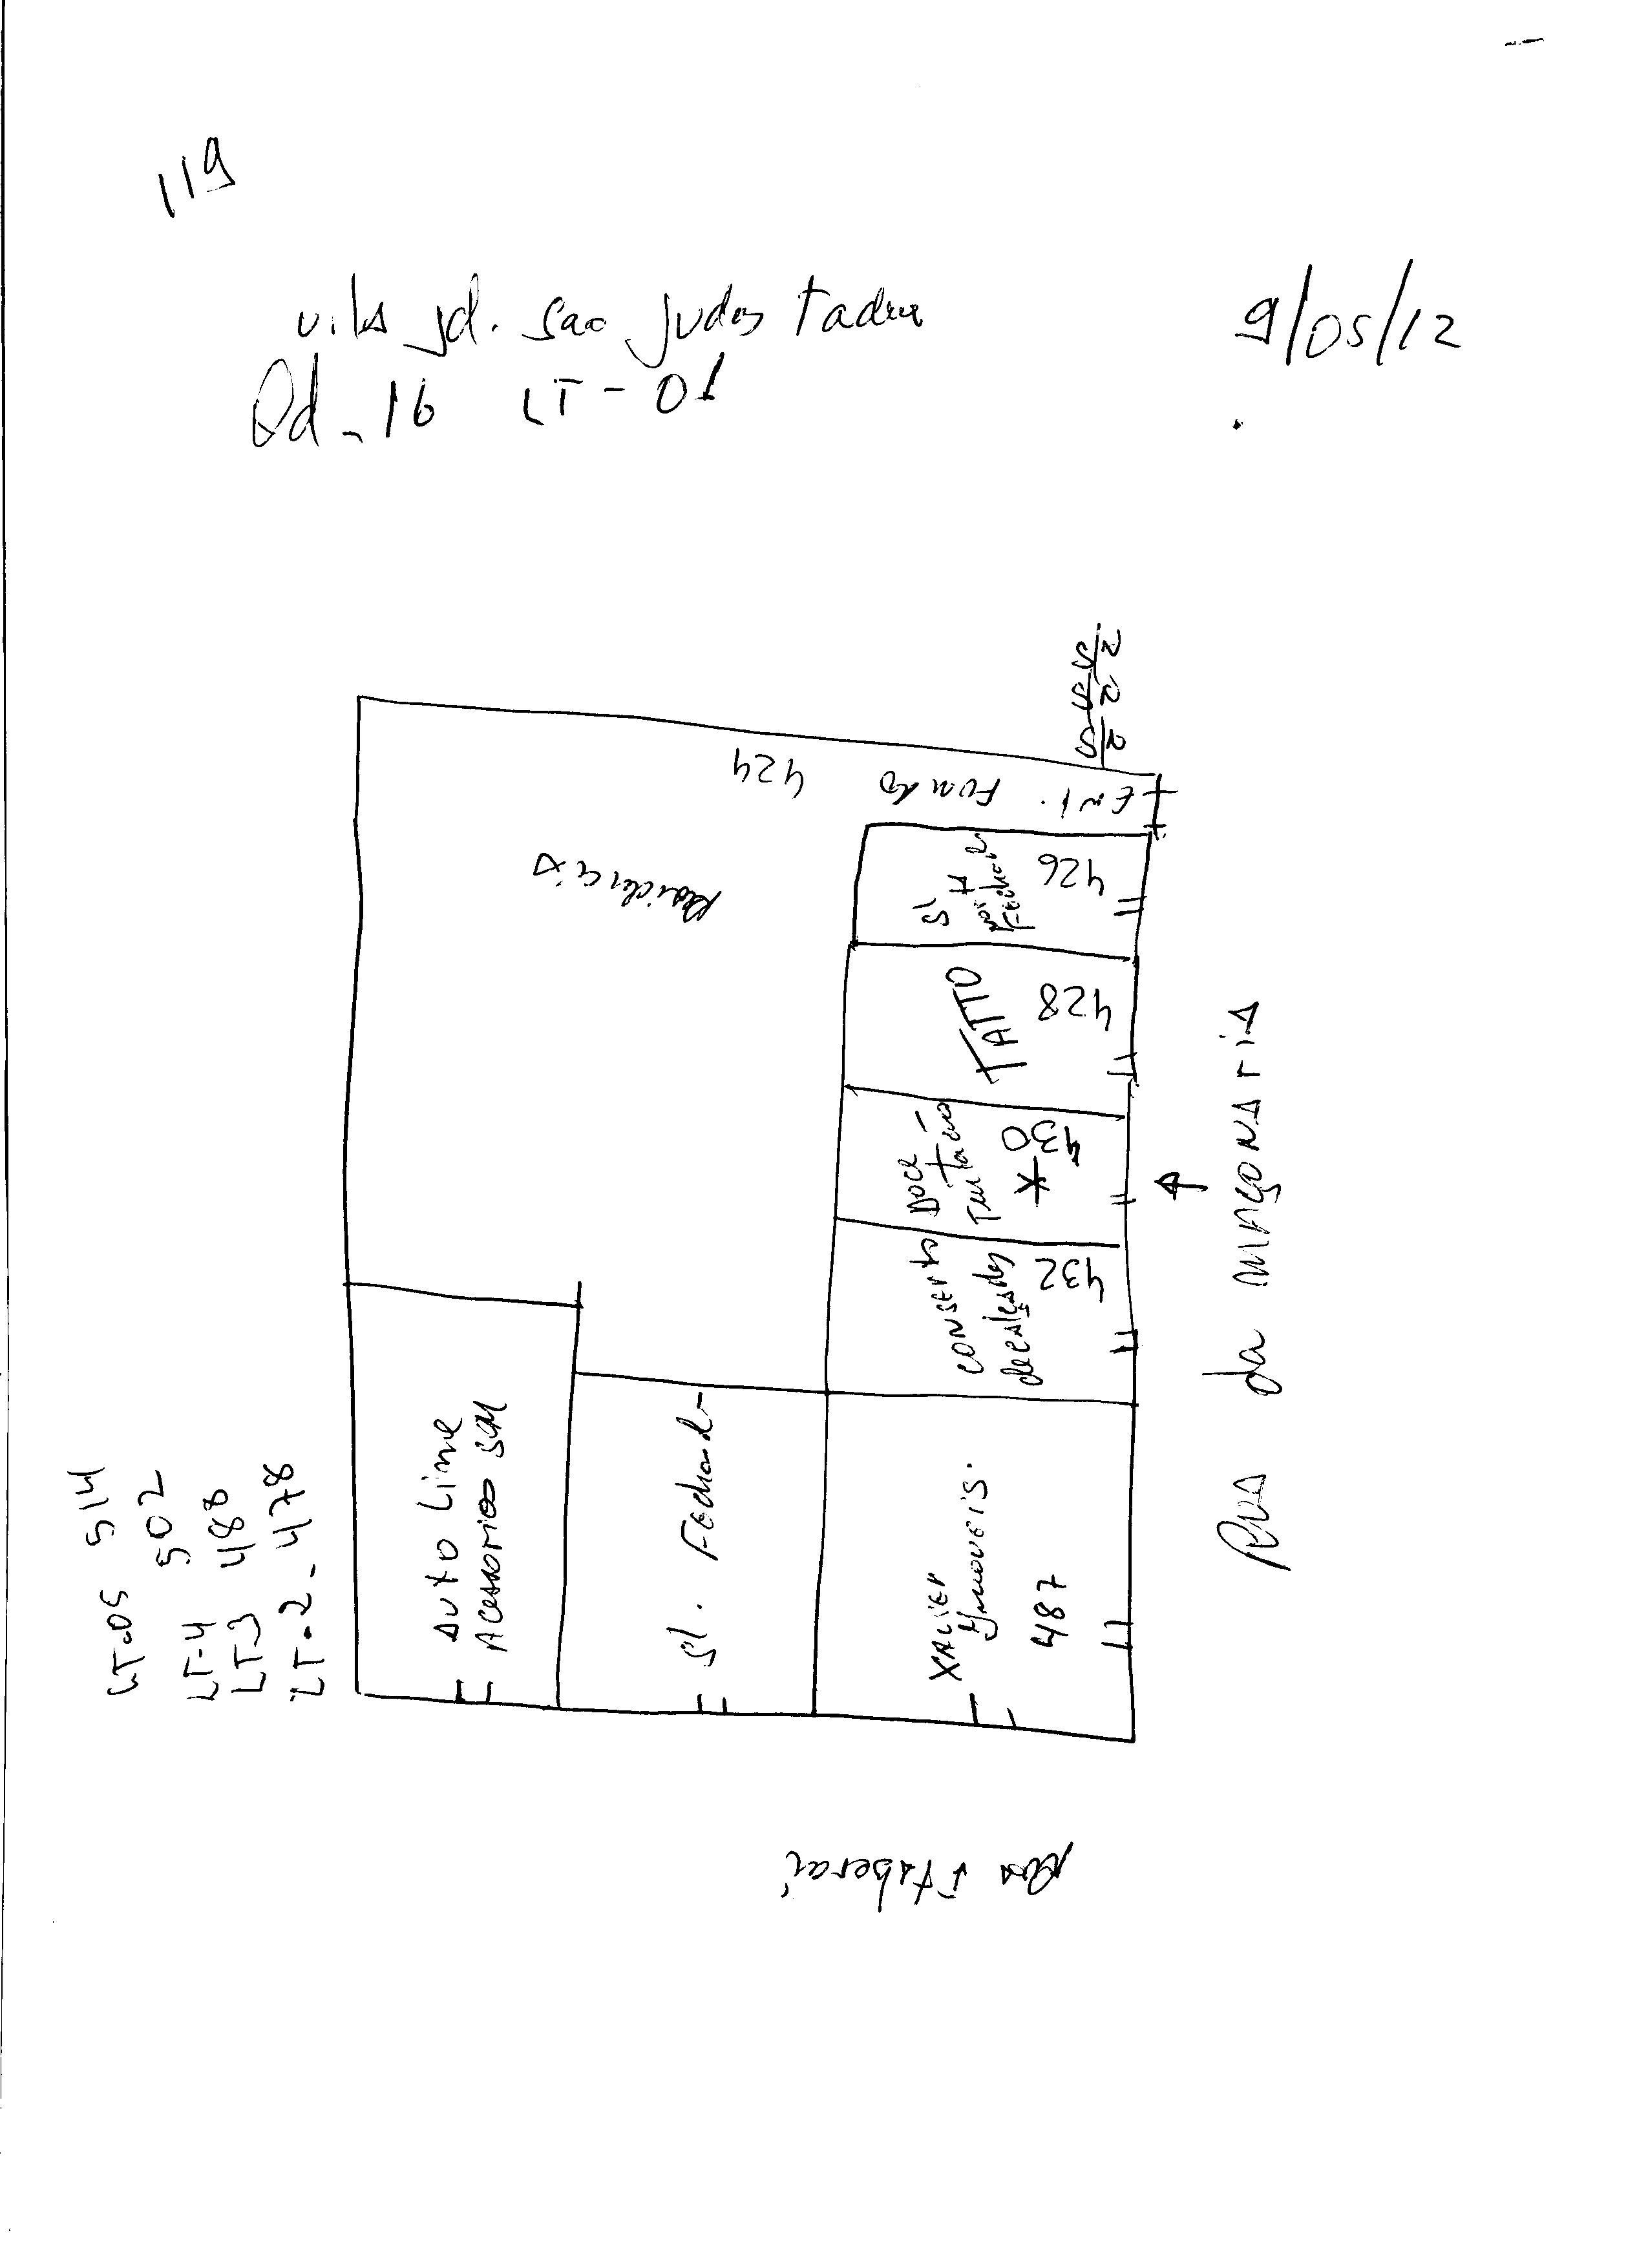 119
vila jd. sao judas tadeu
9/05/12
Qd - 16 LT - 01
LT-05 514
LT-4 502
LT-3 488
LT-2 - 478
424
Ent. Fundo
Residencia
Sl
Fechada
426
TATTO
428
Doce
Tentação
*
430
conserto
de calçados
432
Auto Line
Acessorios
Sl. Fechada
XAVIER
487
Rua da maçonaria
Rua Itaberai